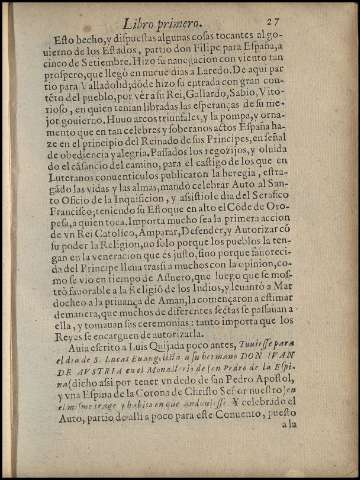 Libro primero. 27
Esto hecho, y dispuestas algunas cosas tocantes al go-
uierno de los Estados, partio don Filipe para España, a
cinco de Setiembre. Hizo su nauegacion con viento tan
prospero, que llegò en nueue dias a Laredo. De aqui par
tio para Valladolid; dõde hizo su entrada con gran con-
tẽto del pueblo, por vèr a su Rei, Gallardo, Sabio, Vito-
rioso, en quien tenian libradas las esperanças de su me-
jor gouierno. Huuo arcos triunfales, y la pompa, y orna-
mento que en tan celebres y soberanos actos España ha-
ze en el principio del Reinado de sus Principes, en señal
de obediencia y alegria. Passados los regozijos, y oluida
do el cãsancio del camino, para el castigo de los que en
Luteranos conuenticulos publicaron la heregia, estra-
gãdo las vidas y las almas, mandò celebrar Auto al San-
to Oficio de la Inquisicion, y assistiole dia del Serafico
Francisco; teniendo su Estoque en alto el Cõde de Oro-
pesa, a quien toca. Importa mucho sea la primera accion
de vn Rei Catolico, Amparar, Defender, y Autorizar cõ
su poder la Religion, no solo porque los pueblos la ten-
gan en la veneracion que es justo, sino porque fauoreci-
da del Principe lleua tras si a muchos con la opinion, co-
mo se vio en tiempo de Assuero, que luego que se mos-
trò fauorable a la Religiõ de los Indios, y leuantò a Mar
docheo a la priuança de Aman, la començaron a estimar
de manera, que muchos de diferentes sectas se passauan a
ella, y tomauan sus ceremonias: tanto importa que los
Reyes se encarguen de autorizarla.
Auia escrito a Luis Quijada poco antes, Tuuiesse para
el dia de S. Lucas Euangelista a su hermano DON IVAN
DE AVSTRIA en el Monasterio de san Pedro de la Espi-
na (dicho assi por tener vn dedo de san Pedro Apostol,
y vna Espina de la Corona de Christo Señor nuestro) en
el mismo trage y habito en que anduuiesse. Y celebrado el
Auto, partio de alli a poco para este Conuento, puesto
a la